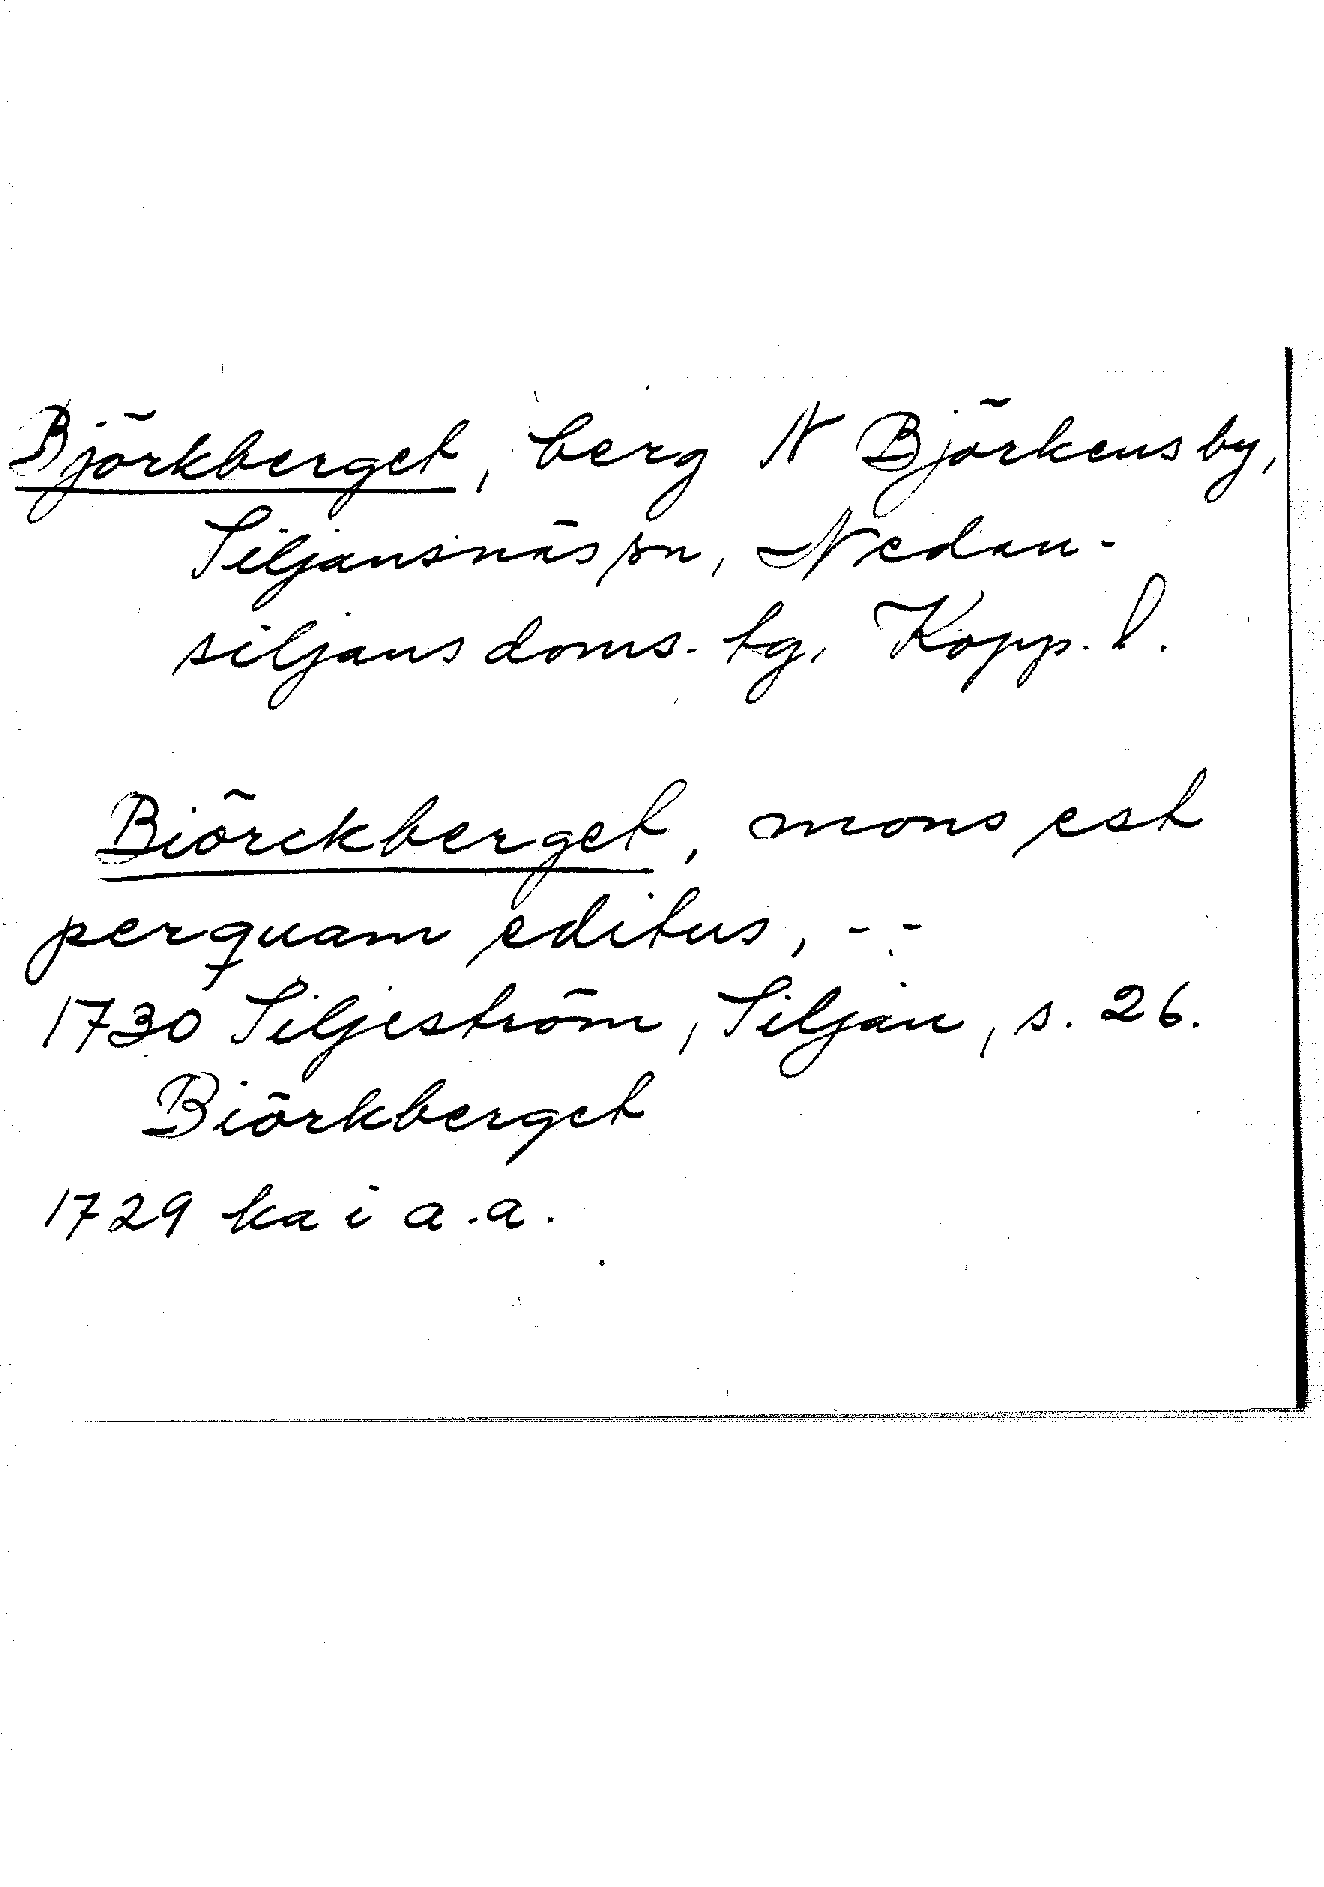 Björkberget, berg N Björkens by,
Siljansnäs sn, Nedan-
siljans doms. tg, Kopp. l.
Biörckberget, mons est
perquam editus, --
1730 Siljeström, Siljan, s. 26.
Biörkberget
1729 ka i a.a.